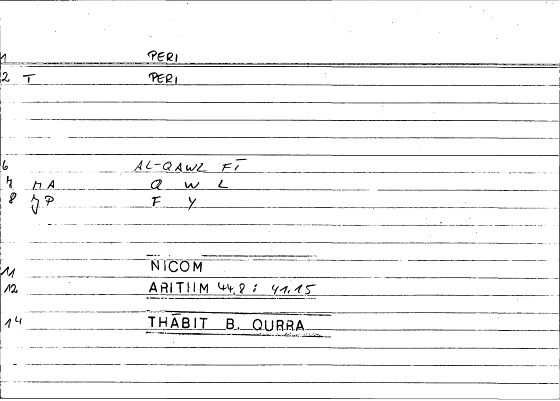 1 PERI
2 T PERI
6 AL-QAWL FĪ
7 MA Q W L
8 JP F Y
11 NICOM
12 ARITHM 44.8 : 41.15
14 THĀBIT B. QURRA